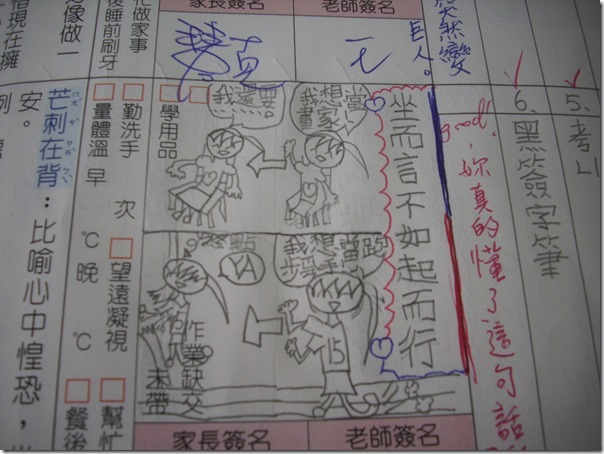 5. 考
6. 黑簽字筆
然變
巨人。
good! 妳真的懂了這句話
老師簽名
家長簽名
忙做家事
後睡前刷牙
像做一
相現在擁
坐而言不如起而行
我想當畫家
我還要
我想當跑步選手
15
YA
終點
學用品
作業缺交
未帶
勤洗手
次
望遠凝視
幫忙
量體溫 早 ℃ 晚 ℃
餐後
芒刺在背:比喻心中惶恐,
安。
例
老師簽名
家長簽名